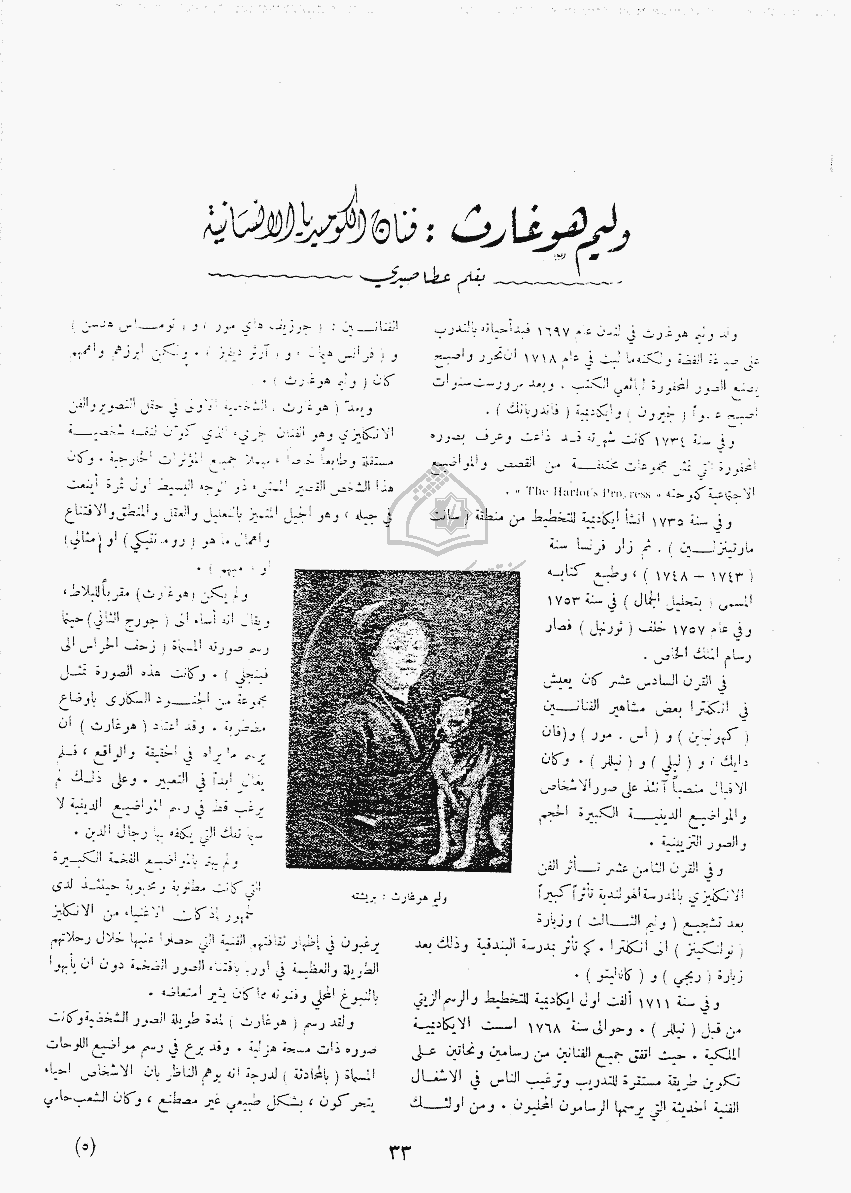 وليم هوغارث : فنان الكوميديا الانسانية
بقلم عطا صبري
ولد وليم هوغارث في لندن عام ١٦٩٧ فبدأ حياته بالتدرب
على صياغة الفضة ولكنه ما لبث في عام ١٧١٨ ان تحرر واصبح
يصنع الصور المحفورة لبائعي الكتب . وبعد مرور ست سنوات
اصبح عضواً ( جيرون ) وايكاديمية ( فاندربانك ) .
وفي سنة ١٧٣٤ كانت شهرته قد ذاعت وعرف بصوره
المحفورة التي تمثل مجموعات مختلفة من القصص والمواضيع
الاجتماعية كلوحته « The Harlot's Progress » .
وفي سنة ١٧٣٥ انشأ ايكاديمية للتخطيط من منطقة ( سانت
مارتينزلين ) . ثم زار فرنسا سنة
( ١٧٤٣ – ١٧٤٨ ) ، وطبع كتابه
المسمى ( بتحليل الجمال ) في سنة ١٧٥٣
وفي عام ١٧٥٧ خلف ( ثورنهل ) فصار
رسام الملك الخاص .
في القرن السادس عشر كان يعيش
في انكلترا بعض مشاهير الفنانين
( كهولباين ) و ( أس . مور ) و(فان
دايك ) و ( ليلي ) و ( نيللر ) . وكان
الاقبال منصباً آنئذ على صور الاشخاص
والمواضيع الدينية الكبيرة الحجم
والصور التزيينية .
وفي القرن الثامن عشر تأثر الفن
الانكليزي بالمدرسة الهولندية تأثراً كبيراً
بعد تشجيع ( وليم الثالث ) وزيارة
( تولكينز ) الى انكلترا . كما تأثر بمدرسة البندقية وذلك بعد
زيارة ( ريجي ) و ( كاناليتو ) .
وفي سنة ١٧١١ ألفت اول ايكاديمية للتخطيط والرسم الزيتي
من قبل ( نيللر ) . وحوالى سنة ١٧٦٨ اسست الايكاديمية
الملكية . حيث اتفق جميع الفنانين من رسامين ونحاتين على
تكوين طريقة مستقرة للتدريب وترغيب الناس في الاشغال
الفنية الحديثة التي يرسمها الرسامون المحليون . ومن اولئك
الفنانين : ( جوزيف هاي مور ) و ( توماس هدسن )
و ( فرانس هيمان ) و ( آرثر ديفز ) . ولكن ابرزهم واهمهم
كان ( وليم هوغارث ) .
ويعد ( هوغارث ) الشخصية الاولى في حقل التصوير والفن
الانكليزي وهو الفنان الجريء الذي كون لنفسه شخصية
مستقلة وطابعاً خاصاً ، مهملا جميع المؤثرات الخارجية . وكان
هذا الشخص القصير الممتلىء ذو الوجه البسيط اول ثمرة أينعت
في جيله ، وهو الجيل المتميز بالتعليل والعقل والمنطق والاقتناع
واهمال ما هو ( رومانتيكي) او (مثالي)
او ( مبهم ) .
ولم يكن (هوغارث) مقرباً للبلاط،
ويقال انه أساء الى ( جورج الثاني) حينما
رسم صورته المسماة ( زحف الحراس الى
فينجلي ) . وكانت هذه الصورة تمثل
مجموعة من الجنود السكارى باوضاع
مضطربة . وقد اعتاد ( هوغارث ) ان
يرسم ما يراه في الحقيقة والواقع ، فلم
يغال ابداً في التعبير . وعلى ذلك لم
يرغب قط في رسم المواضيع الدينية لا
سيما تلك التي يكلفه بها رجال الدين .
ولم يهتم بالمواضيع الفخمة الكبيرة
التي كانت مطلوبة ومحبوبة حينئذ لدى
الجمهور إذ كان الاغنياء من الانكليز
يرغبون في إظهار ثقافتهم الفنية التي حصلوا عليها خلال رحلاتهم
الطويلة والعظيمة في أوربا باقتناء الصور الضخمة دون ان يأبهوا
بالنبوغ المحلي وفنونه مما كان يثير امتعاضه .
ولقد رسم ( هوغارث ) لمدة طويلة الصور الشخصية وكانت
صوره ذات مسحة هزلية . وقد برع في رسم مواضيع اللوحات
المسماة ( بالمحادثة ) لدرجة انه يوهم الناظر بان الاشخاص احياء
يتحركون ، بشكل طبيعي غير مصطنع ، وكان الشعب حامي
وليم هوغارث : بريشته
٣٣
(٥)